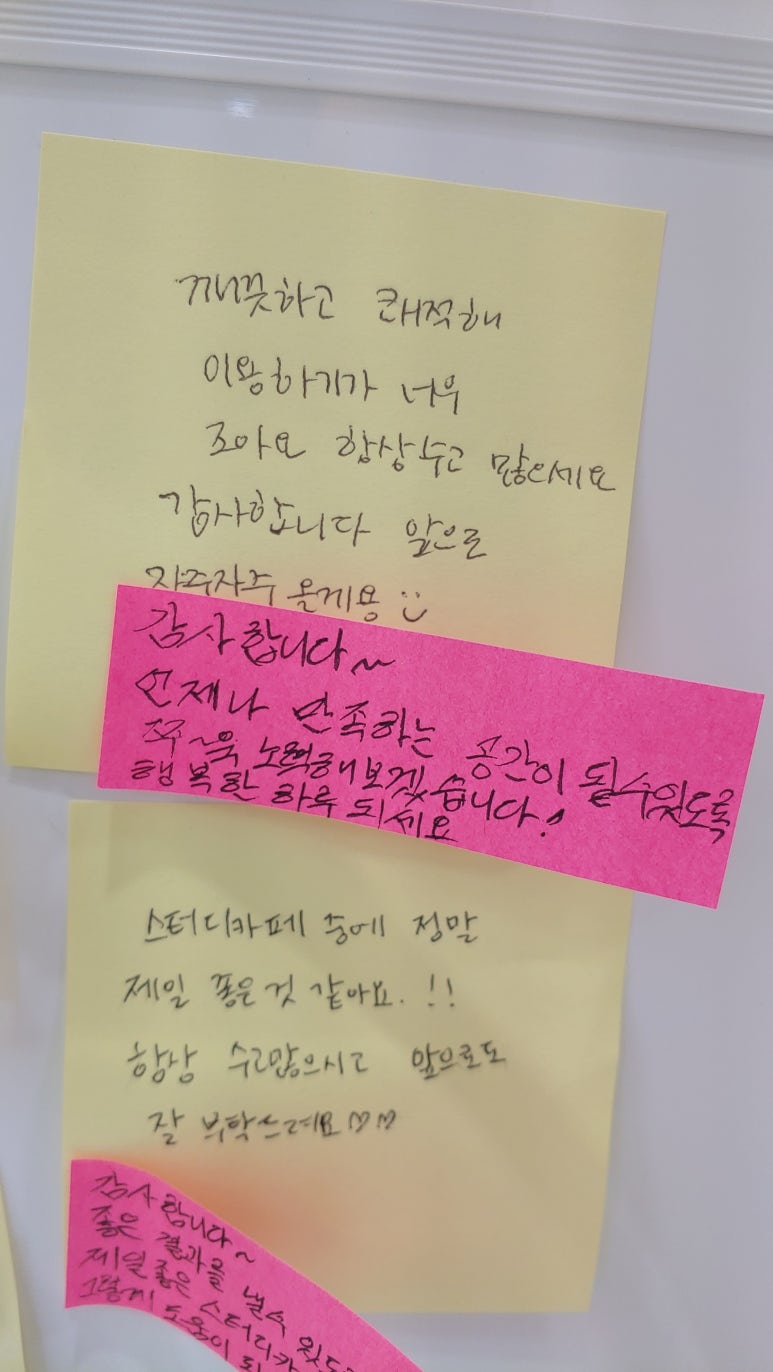 깨끗하고 쾌적해
이용하기가 너우
조아요 항상수고 많으세요
감사합니다 앞으로
자주자주 올게용 :)
감사합니다~
언제나 만족하는 공간이 될수있도록
쭈~욱 노력해보겠습니다!
행복한 하루 되세요
스터디카페 중에 정말
제일 좋은것 같아요. !!
항상 수고많으시고 앞으로도
잘 부탁드려요♡♡
감사합니다~
좋은 결과를 낼수 있도
제일 좋은 스터디카
그렇게 도움이 되